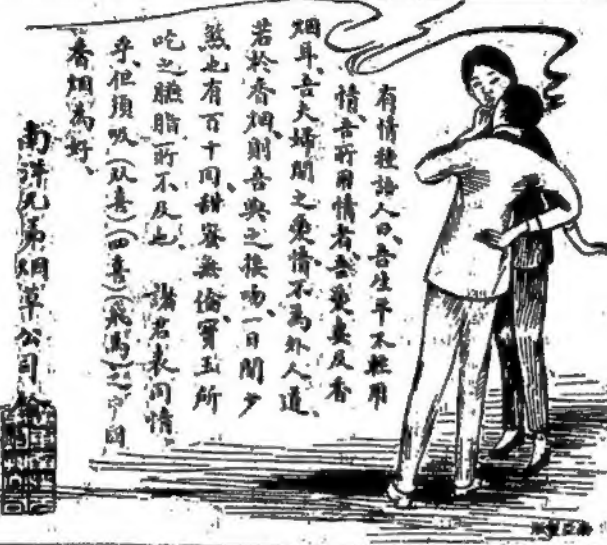 有情種語人曰、吾生平不輕用
情、吾所用情者、吾愛妻及香
烟耳、吾夫婦間之愛情不爲外人道、
若於香烟、則吾與之接吻、一日間少
煞也有百十囘、甜蜜無倫、寶玉所
吃之臙脂所不及也 諸君表同情
乎、但須吸(双喜)(四喜)(飛馬)
香烟爲好、
南洋兄弟烟草公司